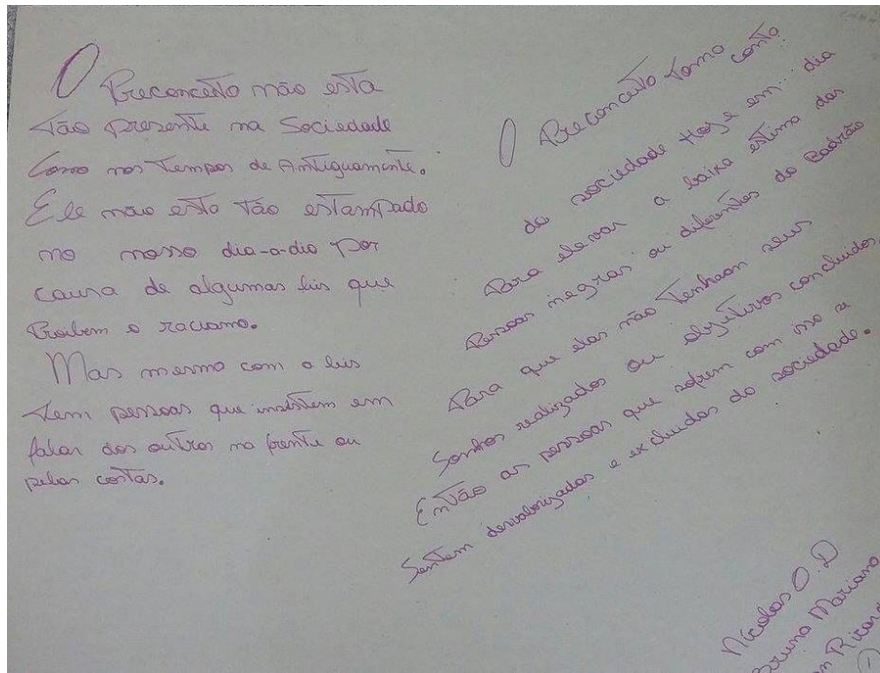 O Preconceito não esta
tão presente na Sociedade
Como nos tempos de Antiguamente.
Ele não esta tão estampado
no nosso dia-a-dia por
causa de algumas leis que
Proibem o racismo.
Mas mesmo com a leis
tem pessoas que insistem em
falar dos outros na frente ou
pelas costas.
O Preconceito toma conta
da sociedade Hoje em dia
Para elevar a baixa estima das
Pessoas negras ou diferentes do Padrão
Para que elas não tenham seus
Sonhos realizados ou objetivos concluidos.
Então as pessoas que sofrem com isso se
Sentem desvalorizadas e excluidas da sociedade.
Nicolas O.D
Bruno Mariano
1